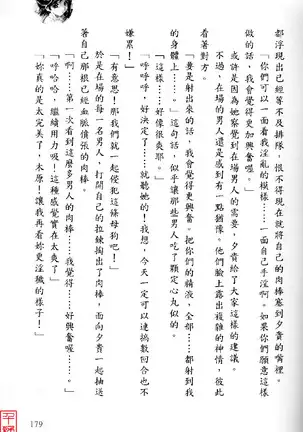 都浮現出已經等不及排隊，恨不得現在就將自己的肉棒塞到夕貴的嘴裡。
「你們可以一面看我淫亂的模樣……一面自己手淫啊。如果你們願意這樣
做的話，我會覺得更加興奮喔。」
或許是因為她察覺到在場男人的需要，夕貴給了大家這樣的建議。
不過，在場的男人還是感到有一點猶豫。他們臉上露出複雜的神情，彼此
看著對方。
「要是射出來的話，我會覺得更興奮。把你們的精液，全部……都射到我
的身體上……。」這句話，似乎讓那些男人吃了顆定心丸似的。
「這樣……好像很爽耶。」
「呼呼呼，好決定了……就聽她的！我想，今天一定可以連搞數回合也不
嫌累！」
「有意思！那我們就一起侵犯這條母狗吧！」
於是在場的每一名男人，打開自己的拉鍊掏出了肉棒，而向夕貴一起抽送
著自己那根已經血脈僨張的肉棒。
「啊……第一次看到這麼多男人的肉棒……我覺得……好興奮喔……。」
「呼哈哈，繼續用力吸！這種感覺實在太爽了！」
「妳真的是太完美了，水原！讓我再看妳更淫穢的樣子！」
179